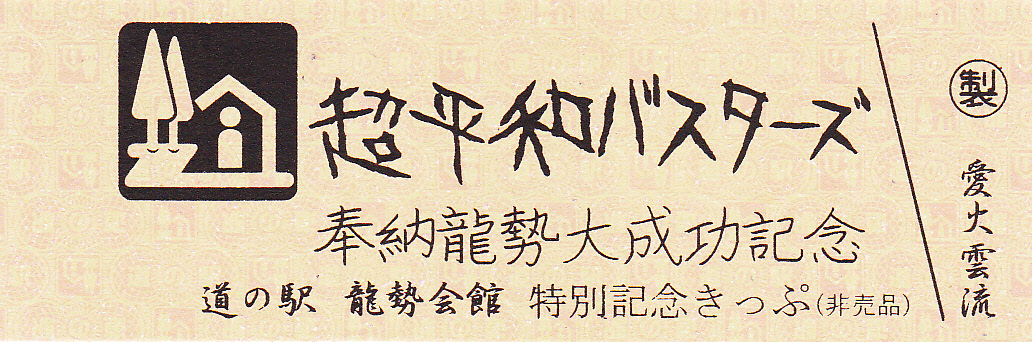 超平和バスターズ
奉納龍勢大成功記念
道の駅 龍勢会館 特別記念きっぷ(非売品)
製
愛火雲流